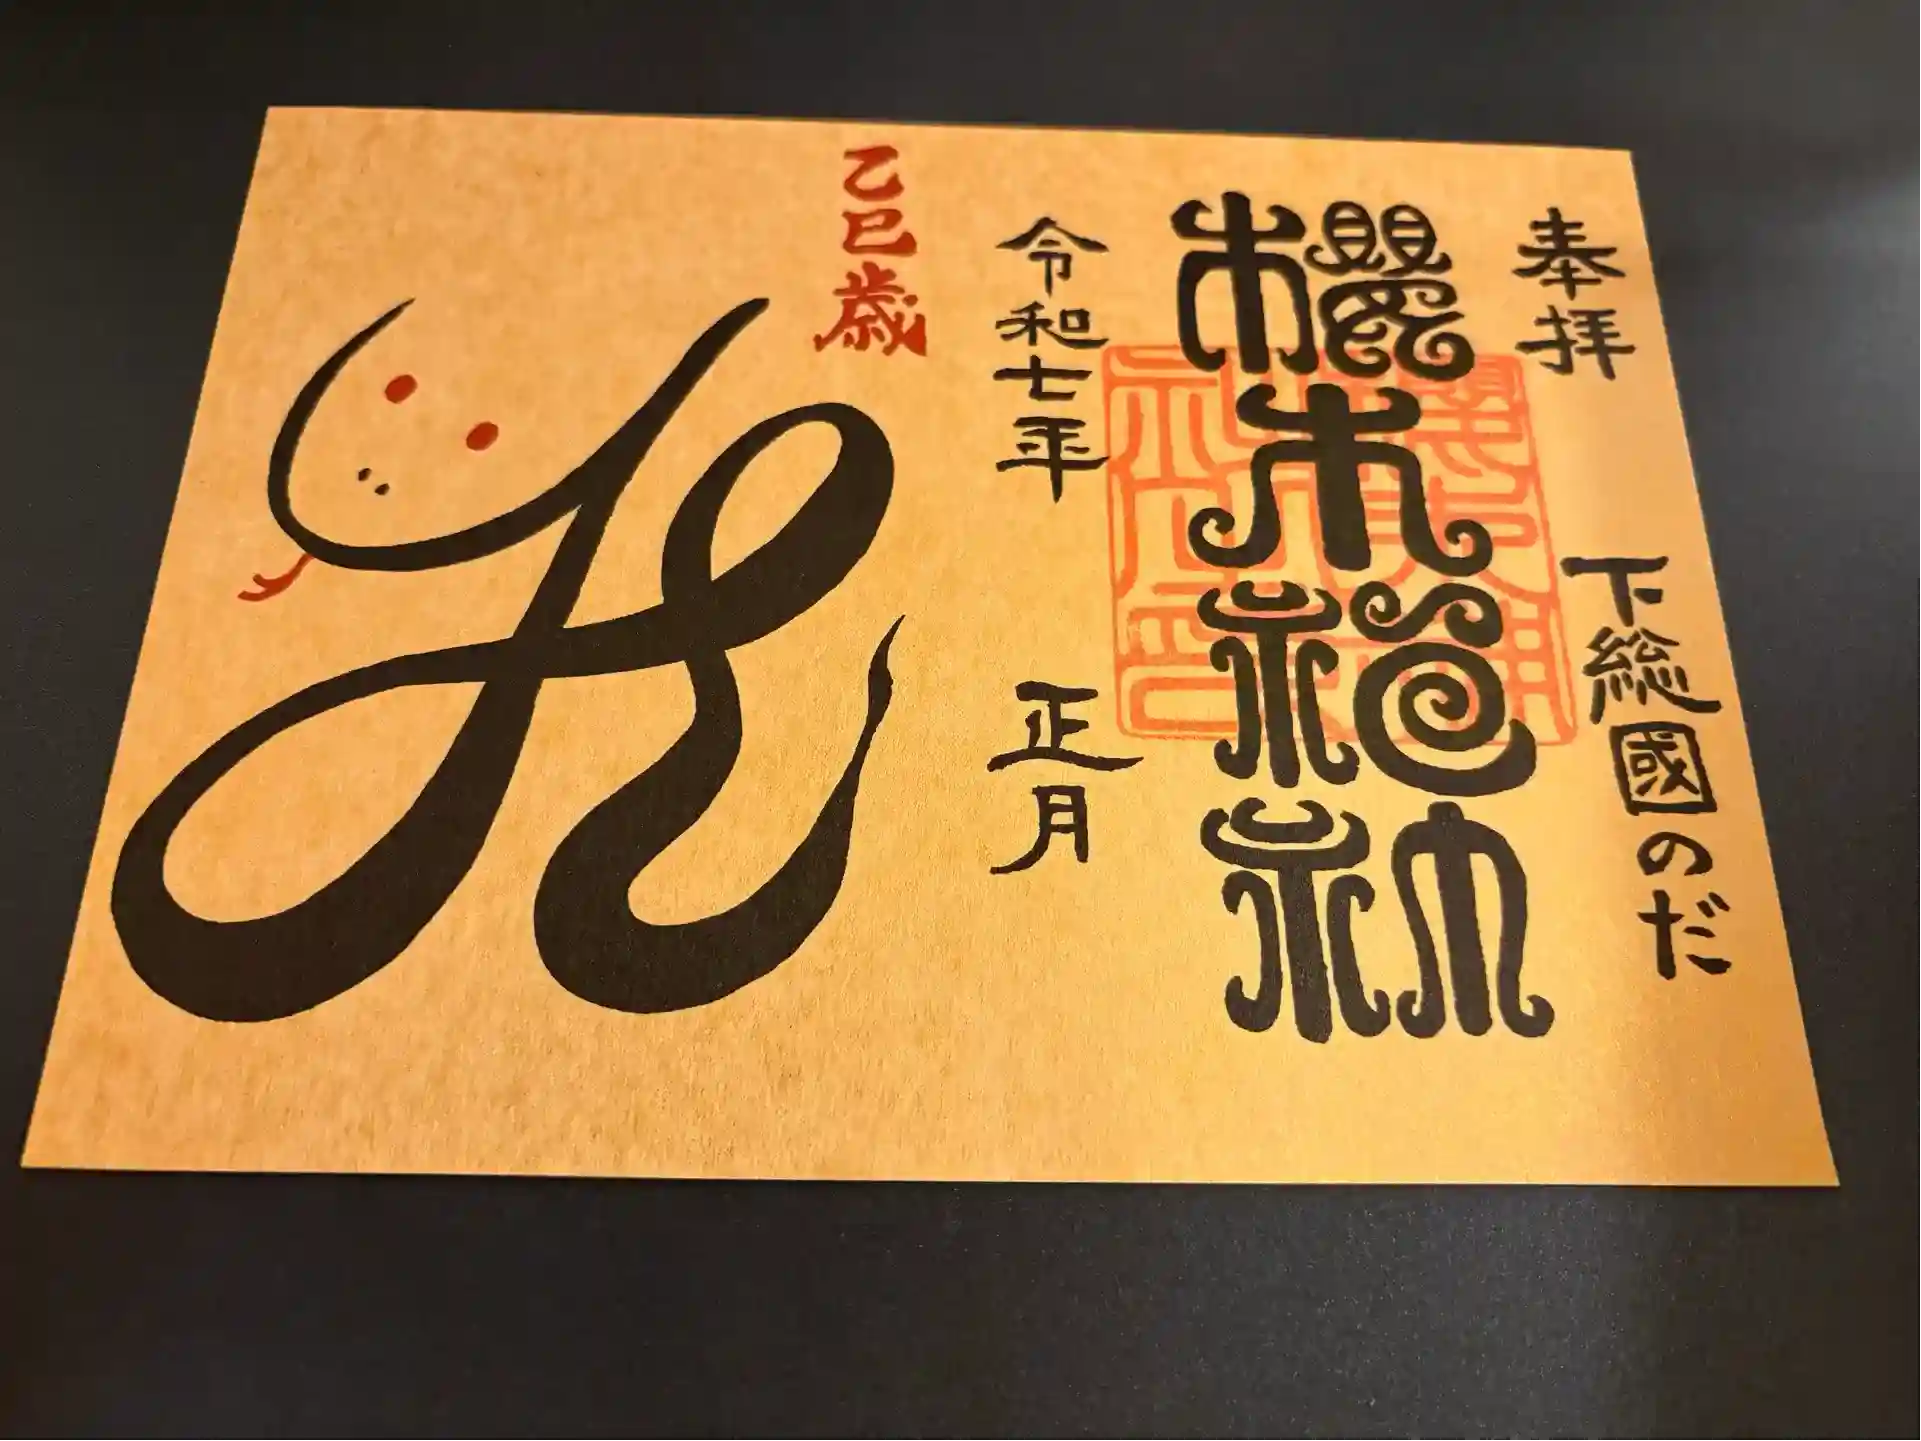 奉拝
下総國のだ
櫻木神社
令和七年 正月
乙巳歳